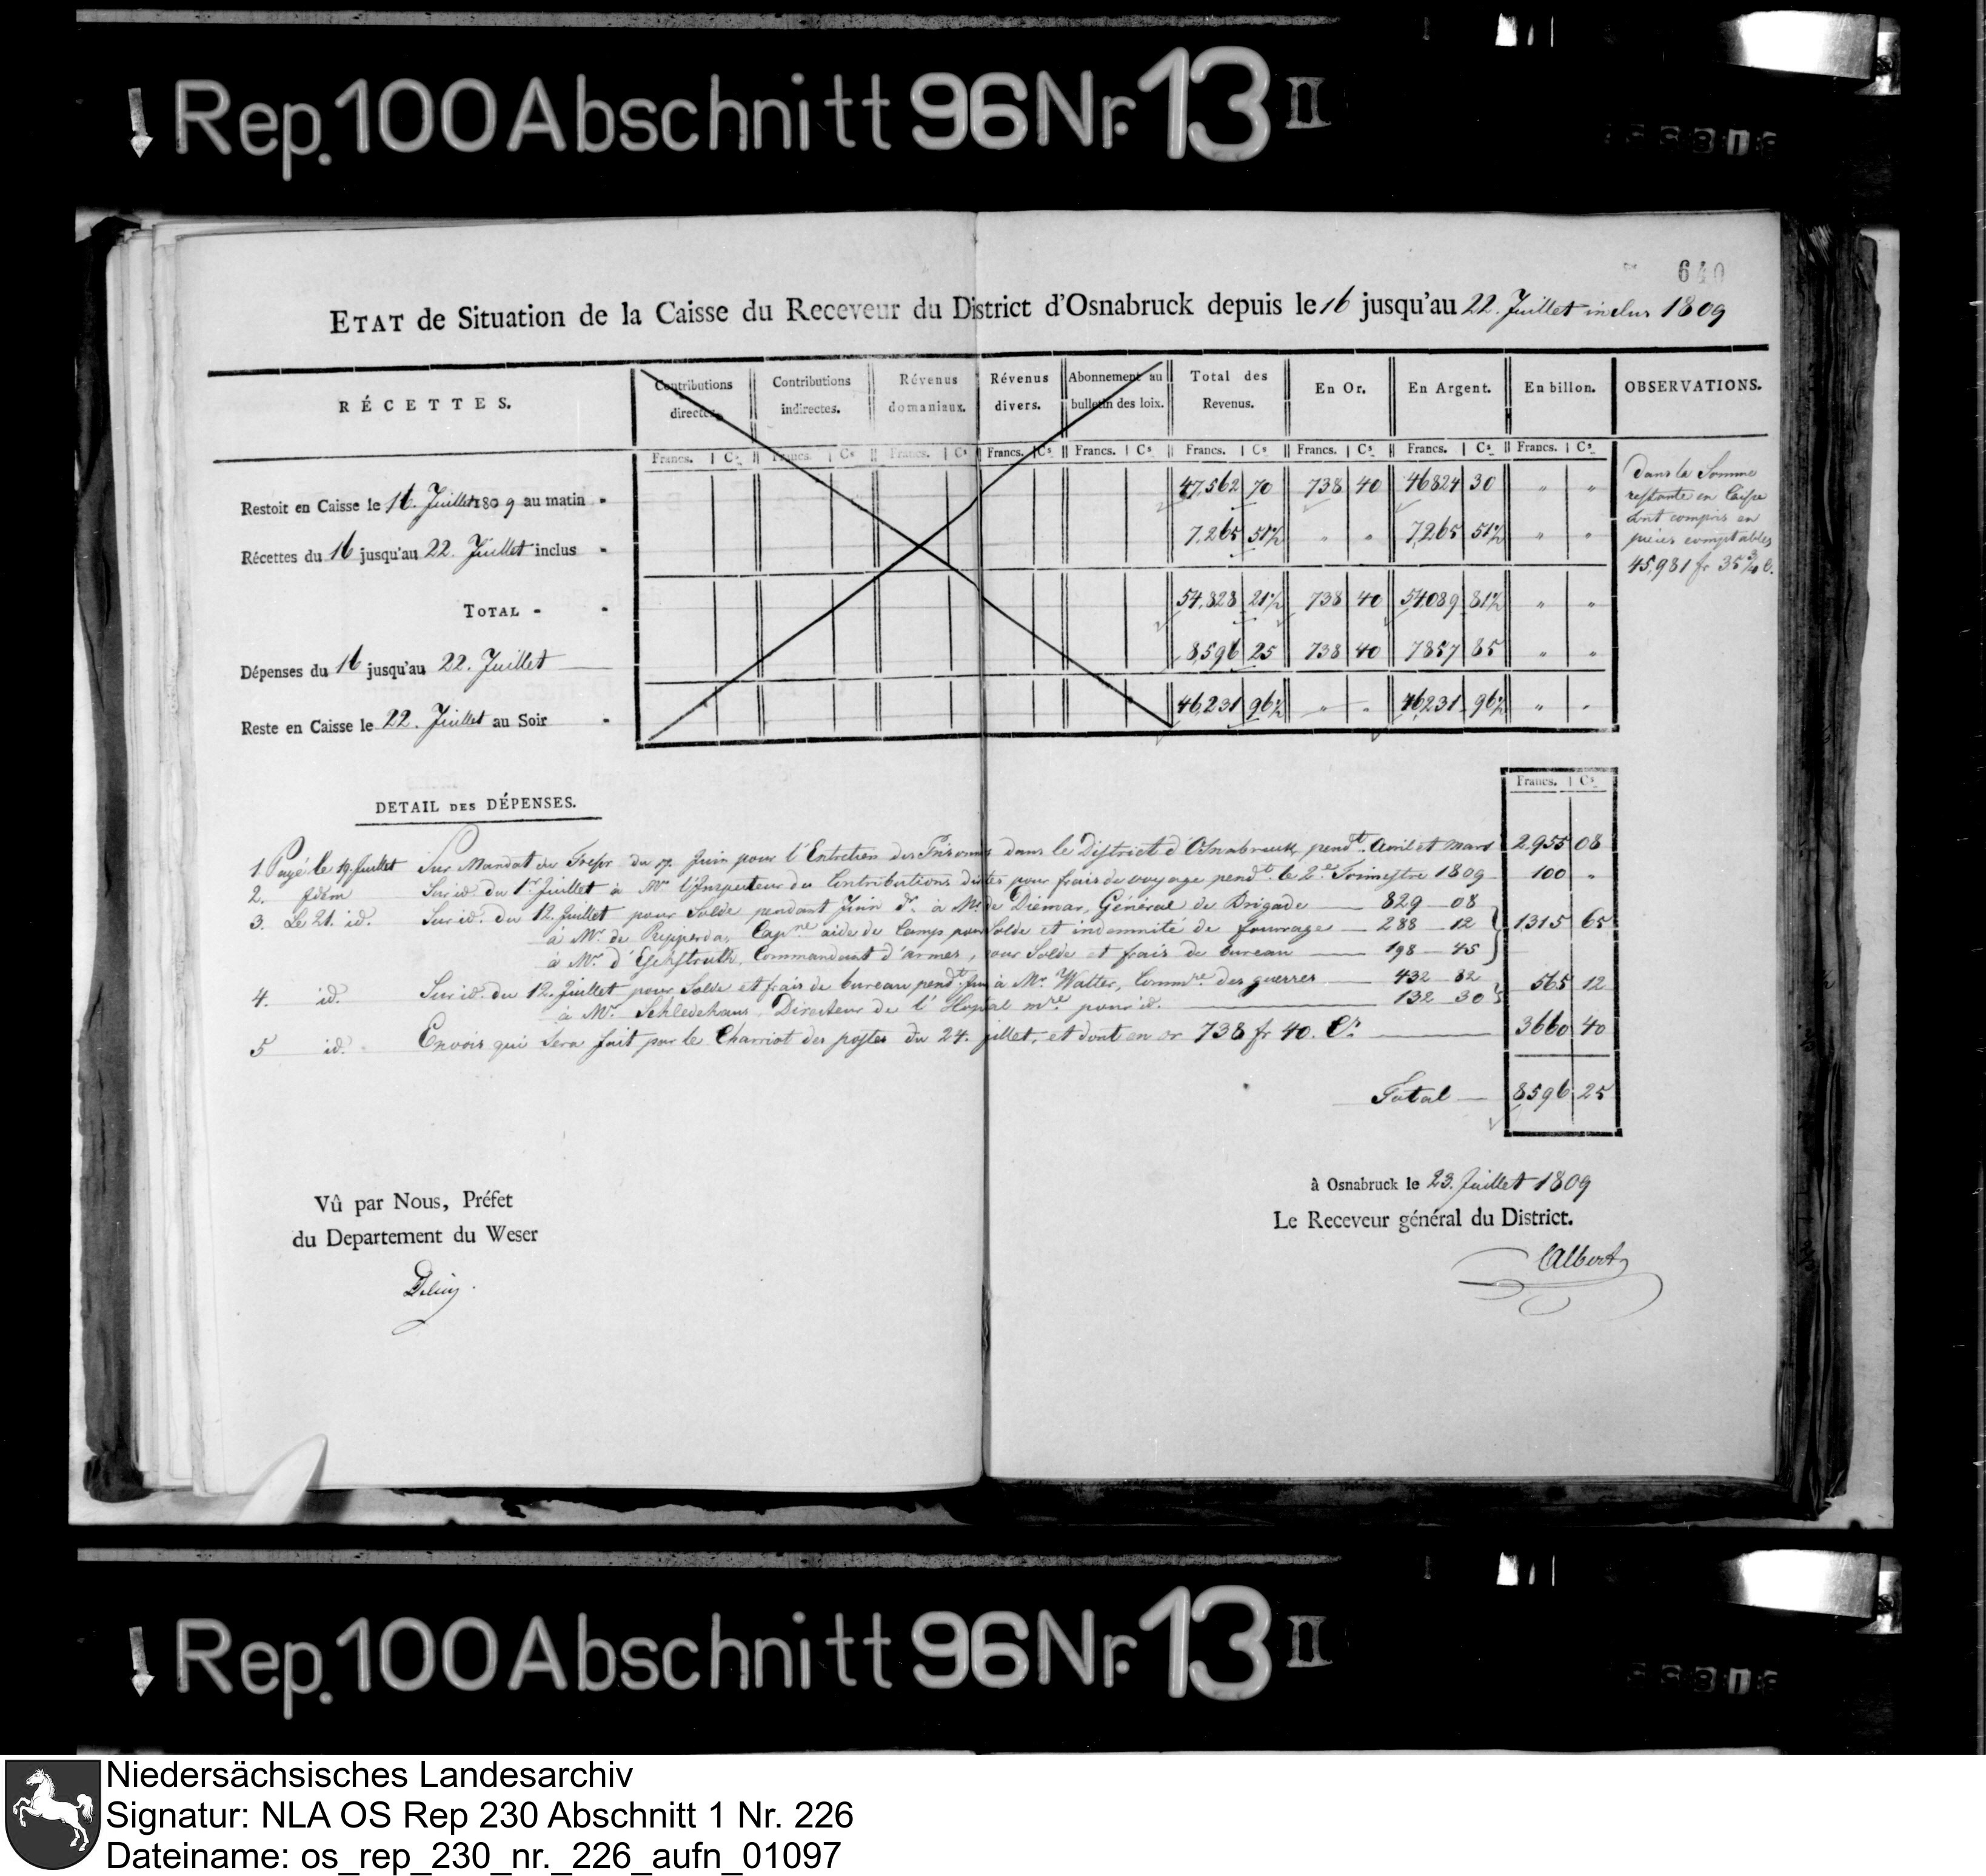 Rep. 100 Abschnitt 96 Nr. 13 II
640
ETAT de Situation de la Caisse du Receveur du District d'Osnabruck depuis le 16 jusqu'au 22. Juillet inclus 1809
RÉCETTES. Contributions directes. Contributions indirectes. Révenus domaniaux. Révenus divers. Abonnement au bulletin des loix. Total des Revenus. En Or. En Argent. En billon. OBSERVATIONS.
Francs. Cs. Francs. Cs Francs. Cs Francs. Cs. Francs. Cs. Francs. Cs. Francs. Cs. Francs. Cs. Francs. Cs.
Restoit en Caisse le 16. Juillet 1809 au matin 47,562 70 738 40 46824 30 " "
Récettes du 16 jusqu'au 22. Juillet inclus 7,265 51½ " " 7,265 51½ " "
TOTAL - 54,828 21½ 738 40 54089 81½ " "
Dépenses du 16 jusqu'au 22. Juillet 8,596 25 738 40 7857 85 " "
Reste en Caisse le 22. Juillet au Soir 46,231 96½ " " 46,231 96½ " "
Dans la Somme
restante en Caisse
sont compris en
pieces comptables
45,981 fr 35 ¾ C.
DETAIL DES DÉPENSES.
Francs. Cs.
1. Payé le 19. Juillet Sur Mandat du Tresor du 17. Juin pour l'Entretien des Prisonniers dans le District d'Osnabruck, pendt. Avril et Mars 2,955 08
2. Idem Sur id. du 1r Juillet à Mr. l'Inspecteur des Contributions dirtes pour frais de voyage pendt. le 2e Trimestre 1809 100 "
3. Le 21. id. Sur id. du 12. Juillet pour Solde pendant Juin dr. à Mr. de Diemar, Général de Brigade 829 08
à Mr. de Ripperda, Capne aide de Camp pour Solde et indemnité de fourrage 288 12 1315 65
à Mr. d'Eschstruth, Commandant d'armes, pour Solde et frais de bureau 198 45
4. id. Sur id. du 12. Juillet pour Solde et frais de bureau pendt. Juin à Mr. Walter, Commre des guerres 432 82 565 12
à Mr. Schledehaus, Directeur de l'Hopital mre pour id. 132 30
5 id. Envois qui sera fait par le Charriot des postes du 24. jillet, et dont en or 738 fr 40. Cs. 3660 40
Total 8596 25
à Osnabruck le 23. Juillet 1809
Le Receveur général du District.
Albert
Vû par Nous, Préfet
du Departement du Weser
Rep. 100 Abschnitt 96 Nr. 13 II
Niedersächsisches Landesarchiv
Signatur: NLA OS Rep 230 Abschnitt 1 Nr. 226
Dateiname: os_rep_230_nr._226_aufn_01097